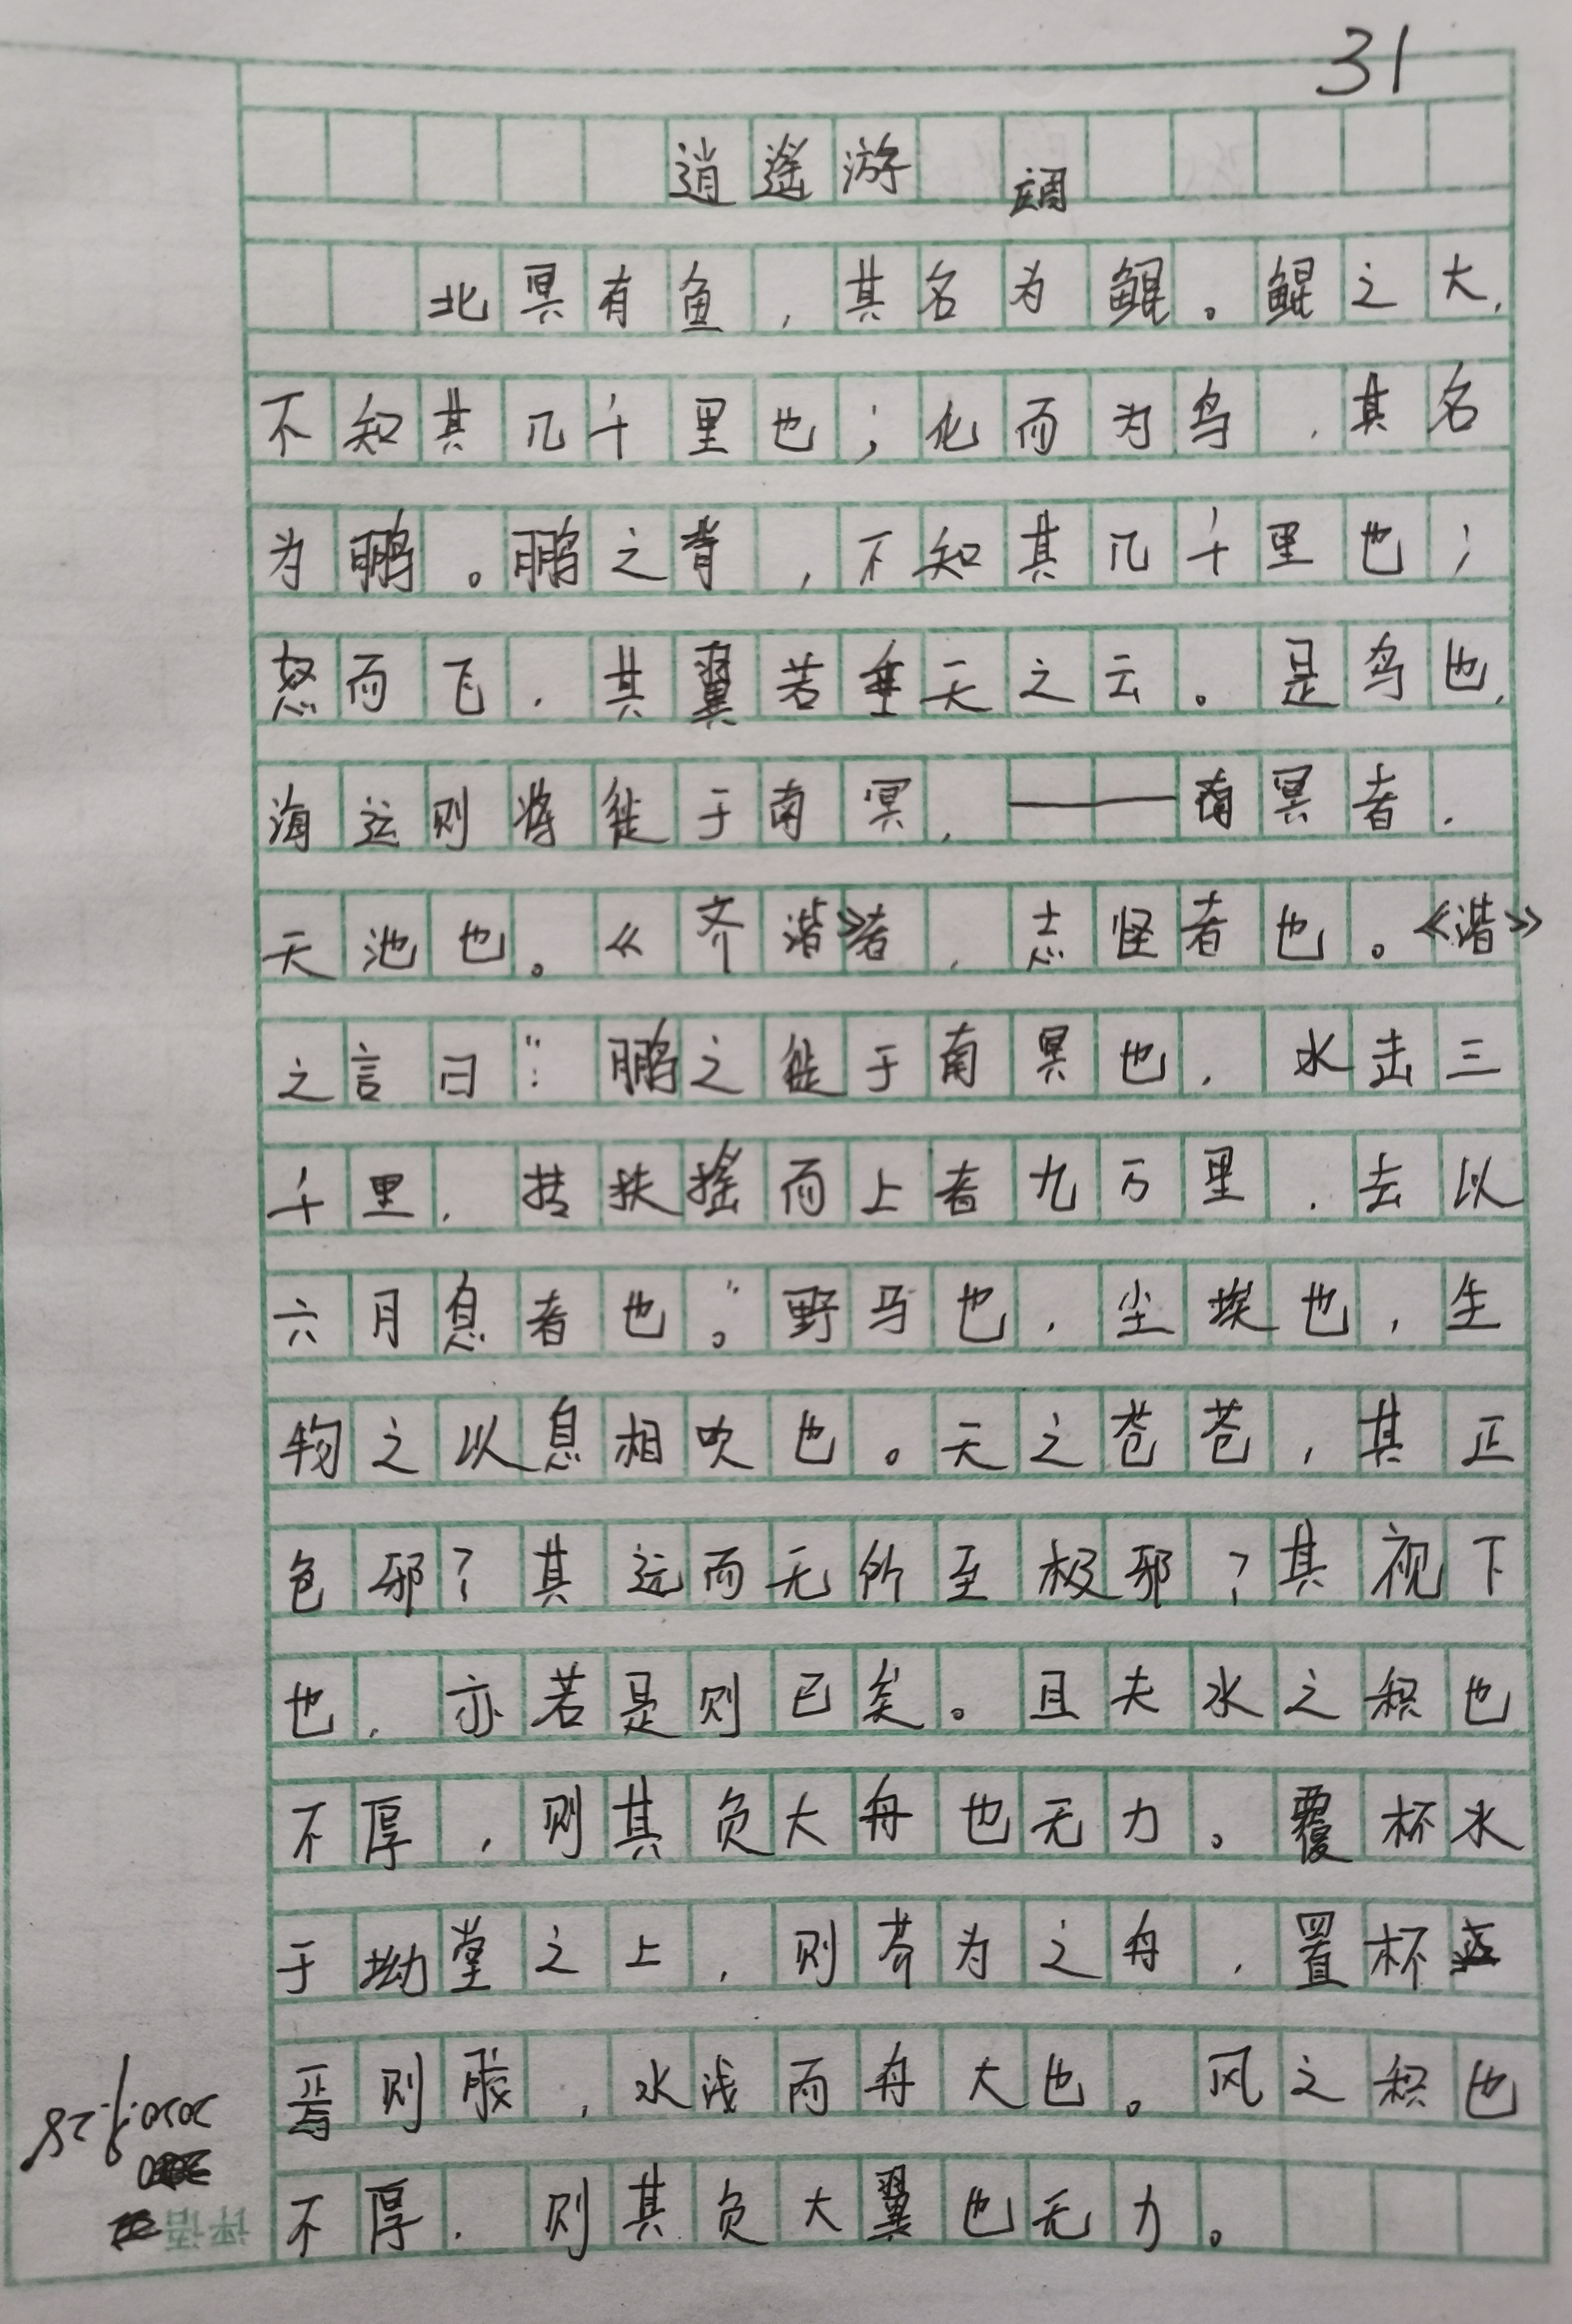 31
逍遥游
北冥有鱼，其名为鲲。鲲之大，
不知其几千里也；化而为鸟，其名
为鹏。鹏之背，不知其几千里也；
怒而飞，其翼若垂天之云。是鸟也，
海运则将徙于南冥，——南冥者，
天池也。《齐谐》者，志怪者也。《谐》
之言曰：“鹏之徙于南冥也，水击三
千里，抟扶摇而上者九万里，去以
六月息者也。”野马也，尘埃也，生
物之以息相吹也。天之苍苍，其正
色邪？其远而无所至极邪？其视下
也，亦若是则已矣。且夫水之积也
不厚，则其负大舟也无力。覆杯水
于坳堂之上，则芥为之舟，置杯
焉则胶，水浅而舟大也。风之积也
不厚，则其负大翼也无力。
评语